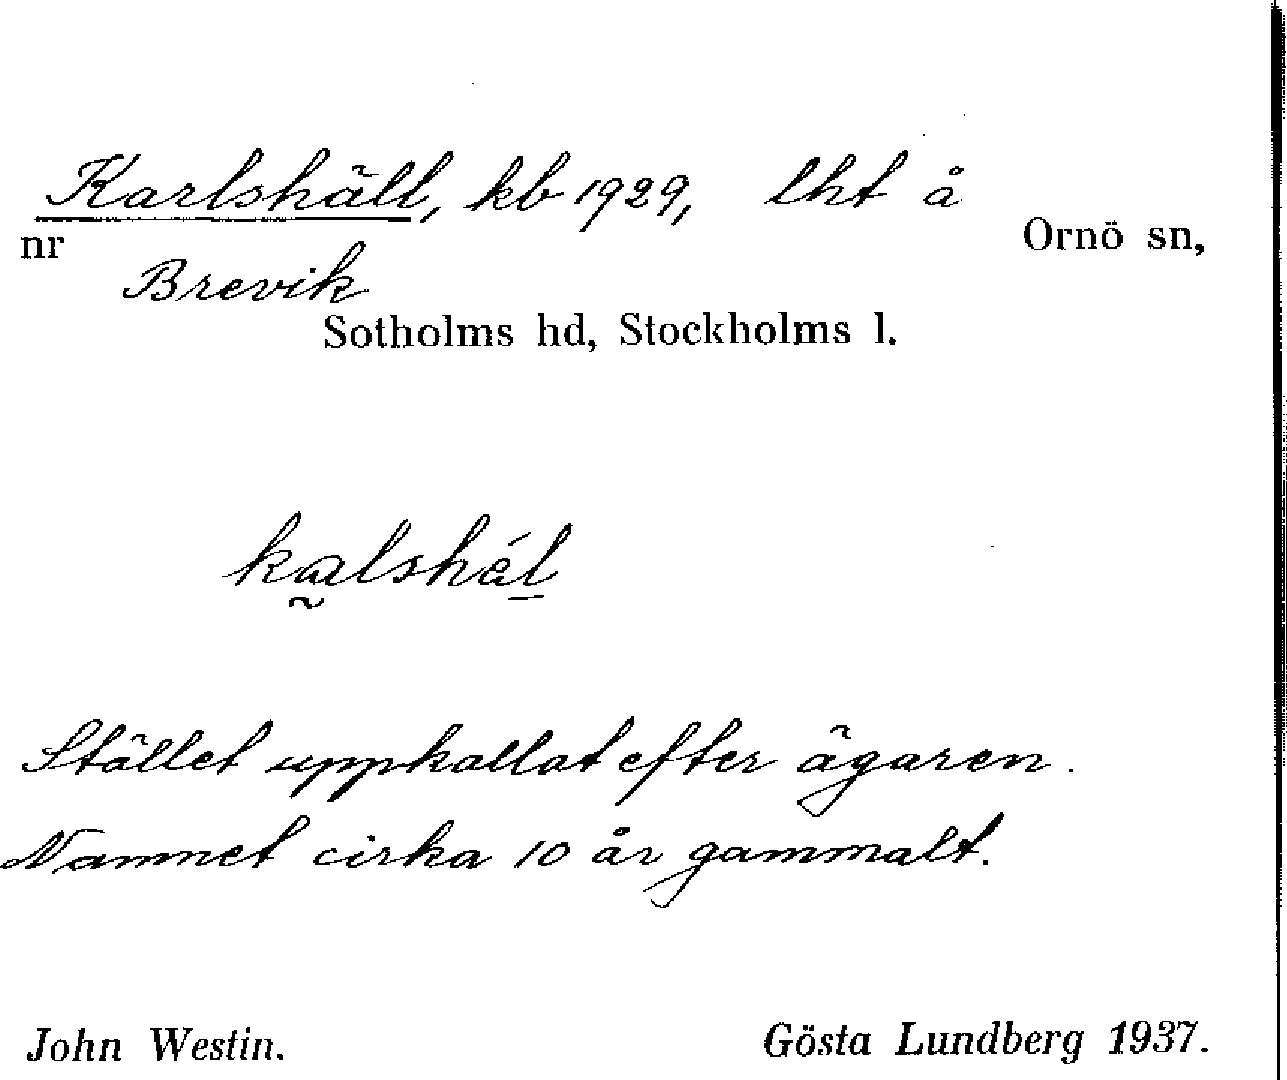 Karlshäll, kb 1929, lht å
nr Ornö sn,
Brevik
Sotholms hd, Stockholms l.
kalshäl
Stället uppkallat efter ägaren.
Namnet cirka 10 år gammalt.
John Westin. Gösta Lundberg 1937.